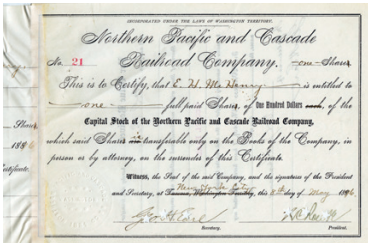 INCORPORATED UNDER THE LAWS OF WASHINGTON TERRITORY.
Northern Pacific and Cascade
No. 21 Railroad Company. one Share
This is to Certify, that E. H. McHenry is entitled to
one full paid Shares, of One Hundred Dollars each, of the
Capital Stock of the Northern Pacific and Cascade Railroad Company,
which said Share is transferable only on the Books of the Company, in
person or by attorney, on the surrender of this Certificate.
Witness, the Seal of the said Company, and the signatures of the President
and Secretary, at Tacoma, Washington Territory, this day of May
Geo H Earl
Secretary.
President.
Share
188
Certificate.